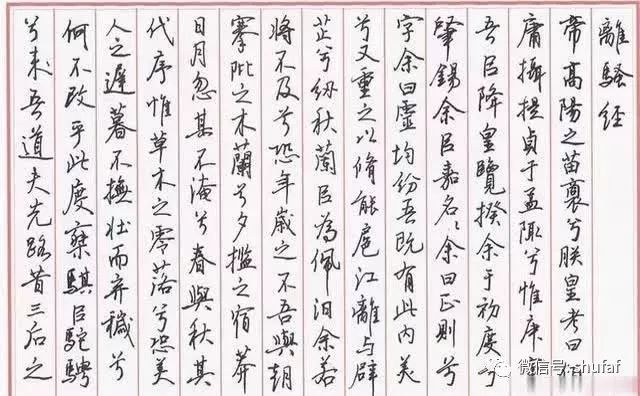 離騷經
帝高陽之苗裔兮朕皇考曰
庸攝提貞于孟陬兮惟庚
吾㠯降皇覽揆余于初度兮
肇錫余㠯嘉名〻余曰正則兮
字余曰靈均纷吾既有此内美
兮又重之以脩能扈江離与辟
芷兮紉秋蘭㠯為佩汩余若
將不及兮恐年歲之不吾與朝
搴阰之木蘭兮夕擥之宿莽
日月忽其不淹兮春與秋其
代序惟草木之零落兮恐美
人之遲暮不撫壯而弃穢兮
何不改乎此度椉騏㠯駝騁
兮来吾道夫先路昔三后之
微信号: